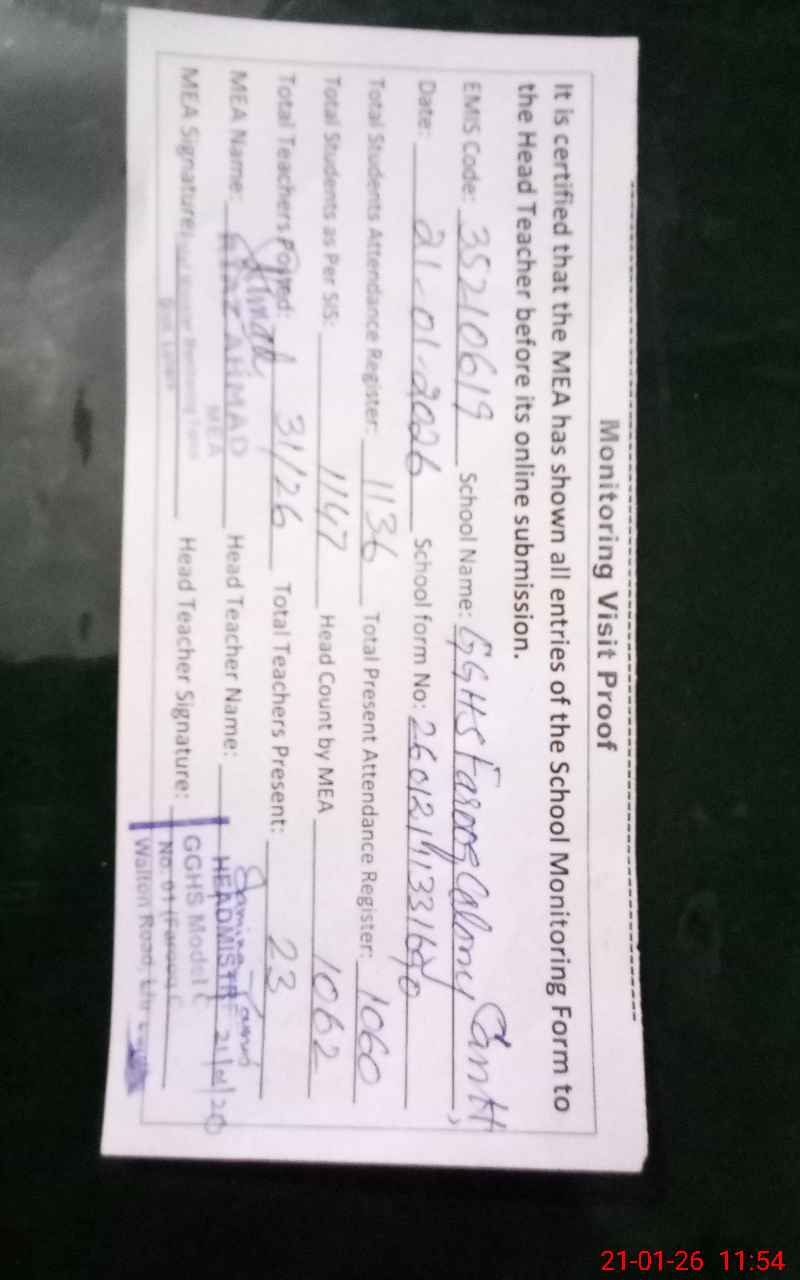 Monitoring Visit Proof
It is certified that the MEA has shown all entries of the School Monitoring Form to
the Head Teacher before its online submission.
EMIS Code: 35210619 School Name: GGHS Farooq Colony Cantt
Date: 21-01-2026 School form No:
Total Students Attendance Register: 1136 Total Present Attendance Register: 1060
Total Students as Per SIS: 1147 Head Count by MEA 1062
Total Teachers Posted: 31/26 Total Teachers Present: 23
MEA Name: AHMAD Head Teacher Name: HEADMISTR
MEA
MEA Signature: Head Teacher Signature:
GGHS Model C
No. 01 (Farooq C
Walton Road, Lhr Cantt
21-01-26 11:54